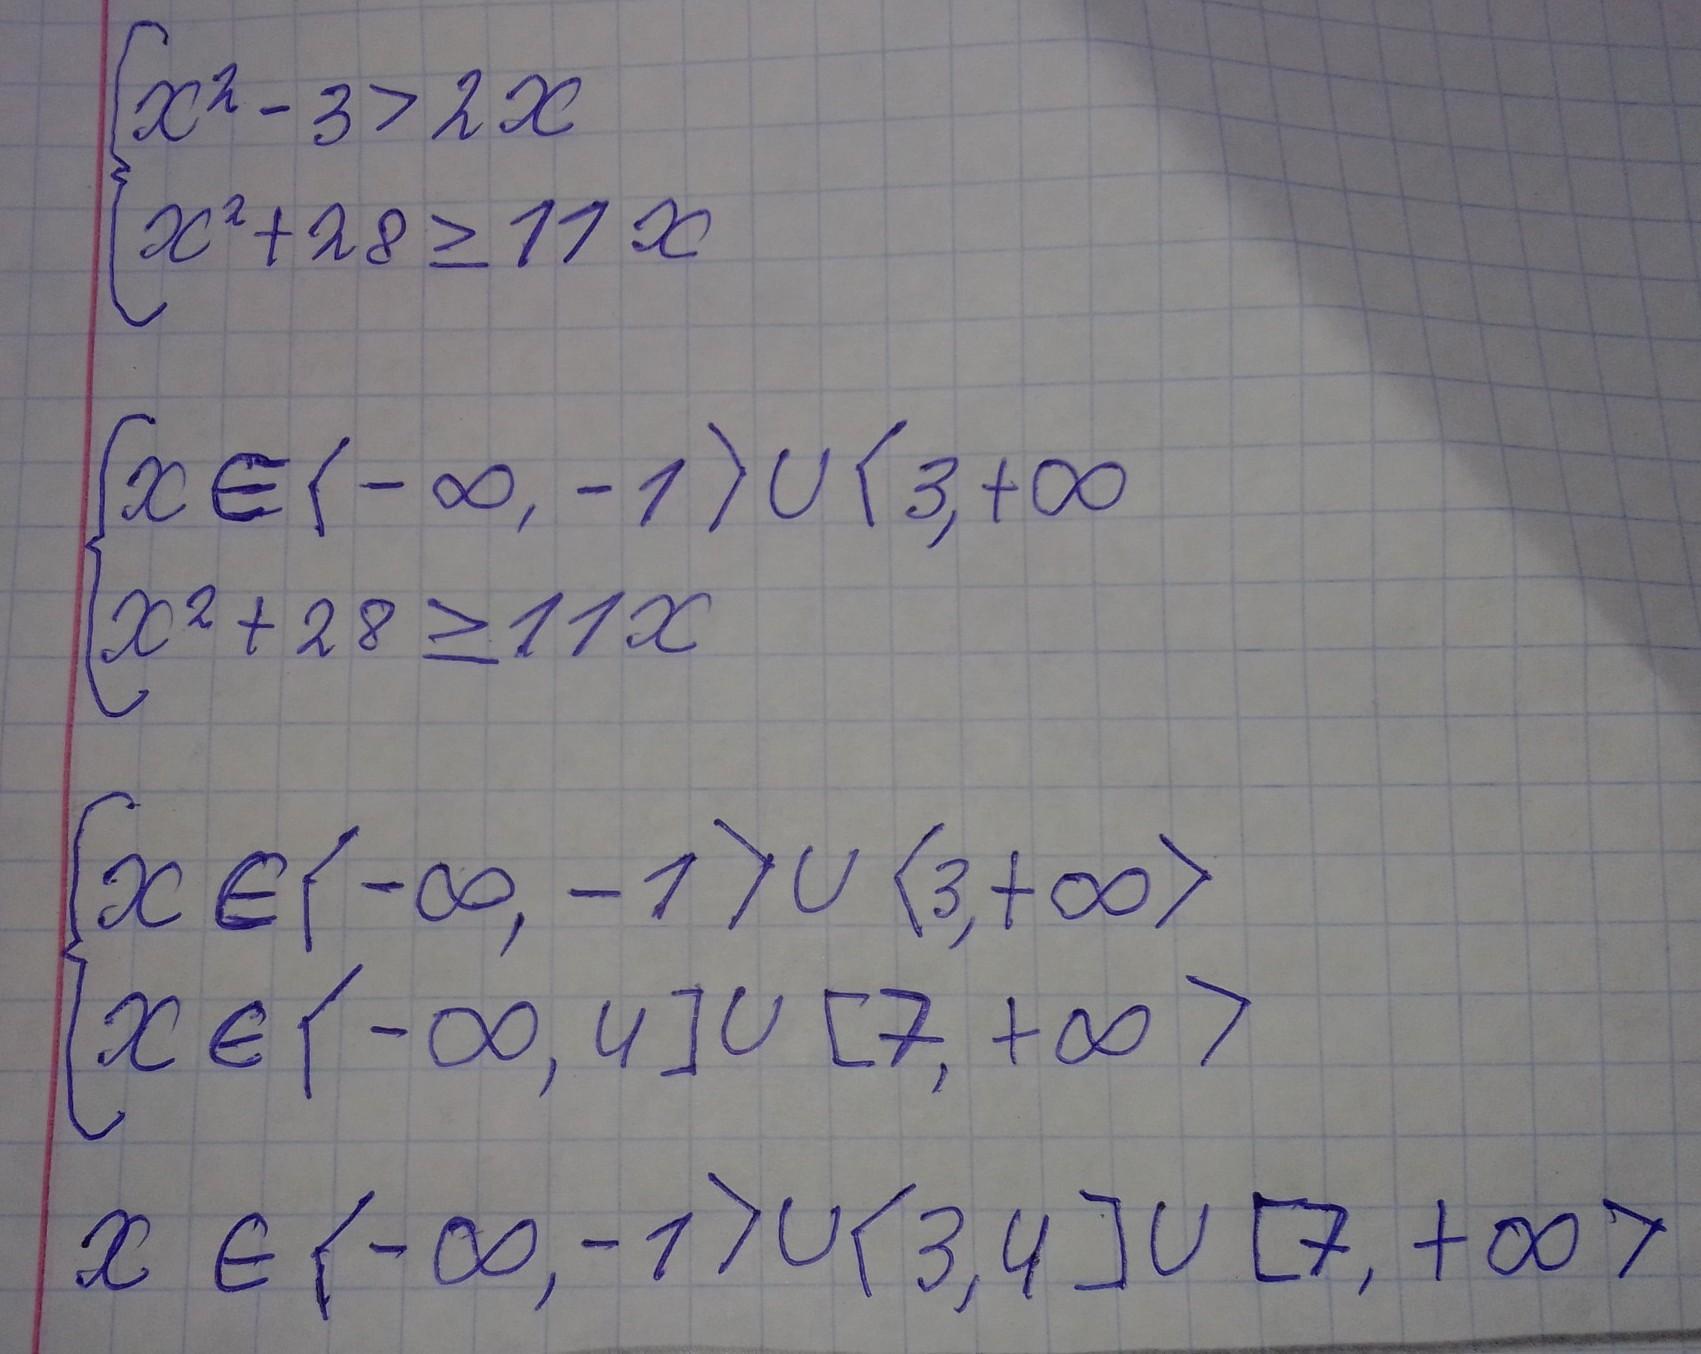 x² - 3 > 2x
x² + 28 ≥ 11x
x ∈ ⟨-∞, -1⟩ ∪ ⟨3, +∞
x² + 28 ≥ 11x
x ∈ ⟨-∞, -1⟩ ∪ ⟨3, +∞⟩
x ∈ ⟨-∞, 4] ∪ [7, +∞⟩
x ∈ ⟨-∞, -1⟩ ∪ ⟨3, 4] ∪ [7, +∞⟩